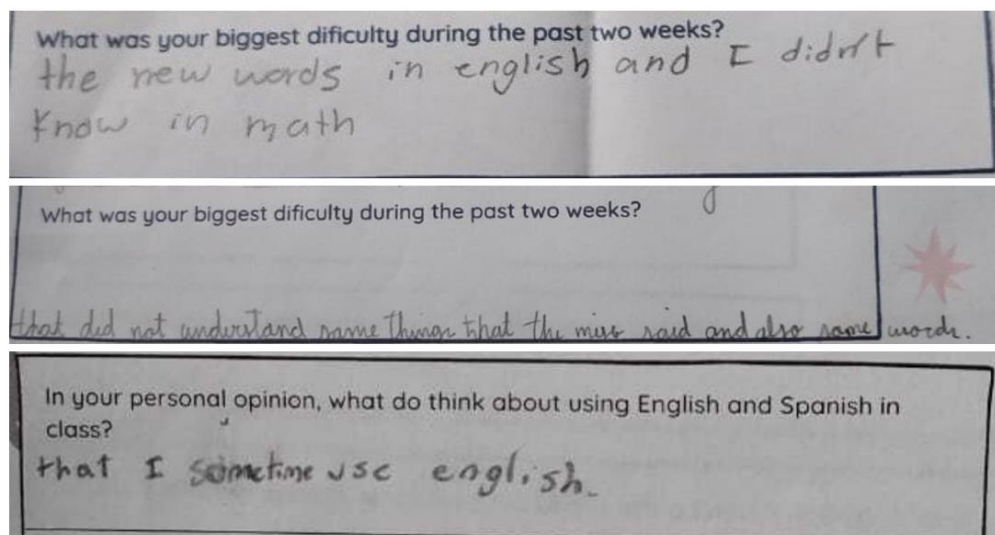 What was your biggest dificulty during the past two weeks?
the new words in english and I didn't
know in math
What was your biggest dificulty during the past two weeks?
that did not understand some things that the miss said and also some words.
In your personal opinion, what do think about using English and Spanish in
class?
that I sometime use english.